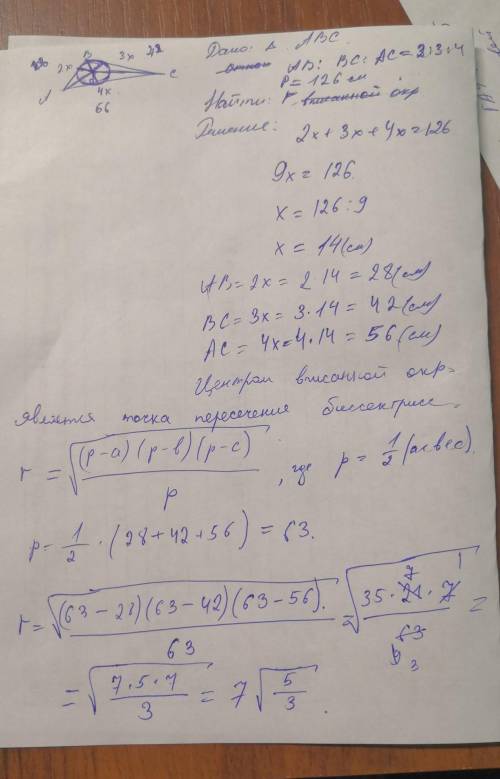 Дано: Δ ABC.
AB : BC : AC = 2:3:4
P = 126 см
Найти: r вписанной окр
Решение:
28 2x B 3x 42
A C
4x
56
2x + 3x + 4x = 126
9x = 126
x = 126 : 9
x = 14 (см)
AB = 2x = 2 · 14 = 28 (см)
BC = 3x = 3 · 14 = 42 (см)
AC = 4x = 4 · 14 = 56 (см)
Центром вписанной окр-
является точка пересечение биссектрисс.
r = √((p-a)(p-b)(p-c) / p), где p = 1/2 (a+b+c).
p = 1/2 · (28 + 42 + 56) = 63.
r = √((63-28)(63-42)(63-56) / 63) = √(35 · 21 · 7 / 63) =
= √(7·5·7 / 3) = 7 √(5/3).